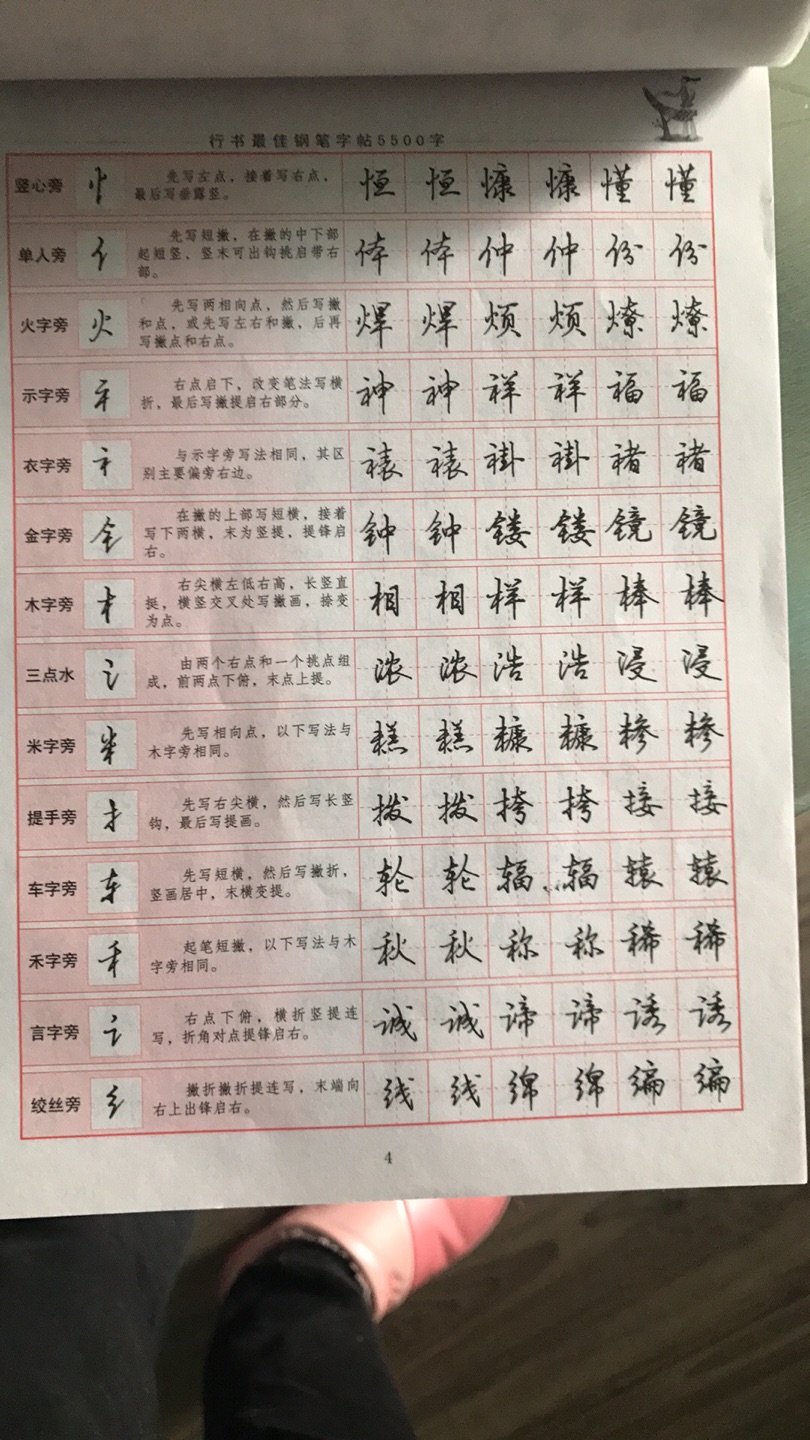 行书最佳钢笔字帖5500字
竖心旁 忄 先写左点，接着写右点，
最后写垂露竖。
恒 恒 慷 慷 懂 懂
单人旁 亻 先写短撇，在撇的中下部
起短竖，竖末可出钩挑启带右
部。
体 体 仲 仲 份 份
火字旁 火 先写两相向点，然后写撇
和点，或先写左右和撇，后再
写撇点和右点。
焊 焊 烦 烦 燎 燎
示字旁 礻 右点启下，改变笔法写横
折，最后写撇提启右部分。
神 神 祥 祥 福 福
衣字旁 衤 与示字旁写法相同，其区
别主要偏旁右边。
裱 裱 褂 褂 褚 褚
金字旁 钅 在撇的上部写短横，接着
写下两横，末为竖提，提锋启
右。
钟 钟 镂 镂 镜 镜
木字旁 木 右尖横左低右高，长竖直
挺，横竖交叉处写撇画，捺变
为点。
相 相 样 样 棒 棒
三点水 氵 由两个右点和一个挑点组
成，前两点下俯，末点上提。
浓 浓 浩 浩 浸 浸
米字旁 米 先写相向点，以下写法与
木字旁相同。
糕 糕 糠 糠 糁 糁
提手旁 扌 先写右尖横，然后写长竖
钩，最后写提画。
拨 拨 挎 挎 接 接
车字旁 车 先写短横，然后写撇折，
竖画居中，末横变提。
轮 轮 辐 辐 辕 辕
禾字旁 禾 起笔短撇，以下写法与木
字旁相同。
秋 秋 称 称 稀 稀
言字旁 讠 右点下俯，横折竖提连
写，折角对点提锋启右。
诚 诚 谛 谛 诱 诱
绞丝旁 纟 撇折撇折提连写，末端向
右上出锋启右。
线 线 绵 绵 编 编
4